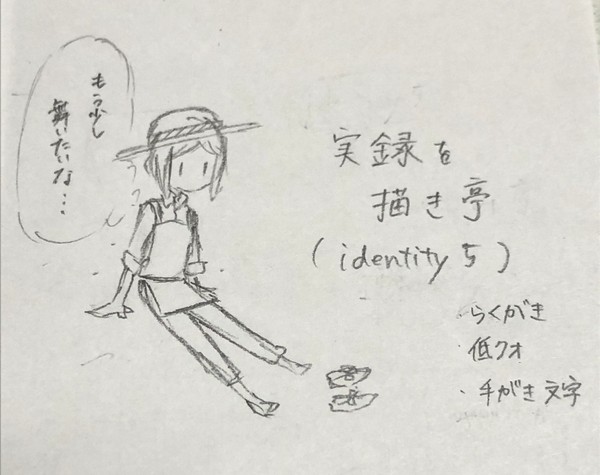 もう少し
舞いたいな…
実録を
描き亭
(identity 5)
・らくがき
・低クオ
・手がき文字